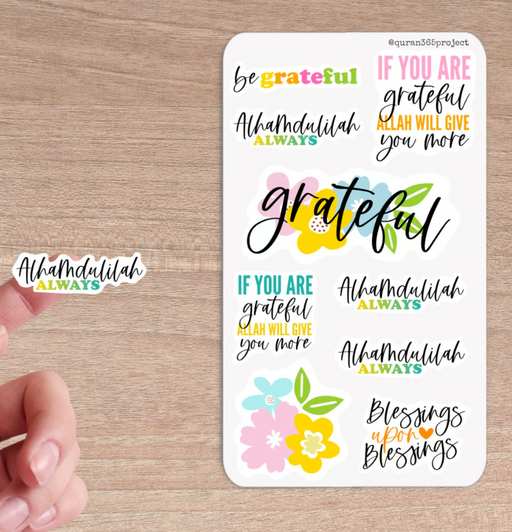 @quran365project
be grateful
IF YOU ARE
grateful
ALLAH WILL GIVE
you more
Alhamdulilah
ALWAYS
grateful
Alhamdulilah
ALWAYS
IF YOU ARE
grateful
ALLAH WILL GIVE
you more
Alhamdulilah
ALWAYS
Alhamdulilah
ALWAYS
Blessings
upon
Blessings